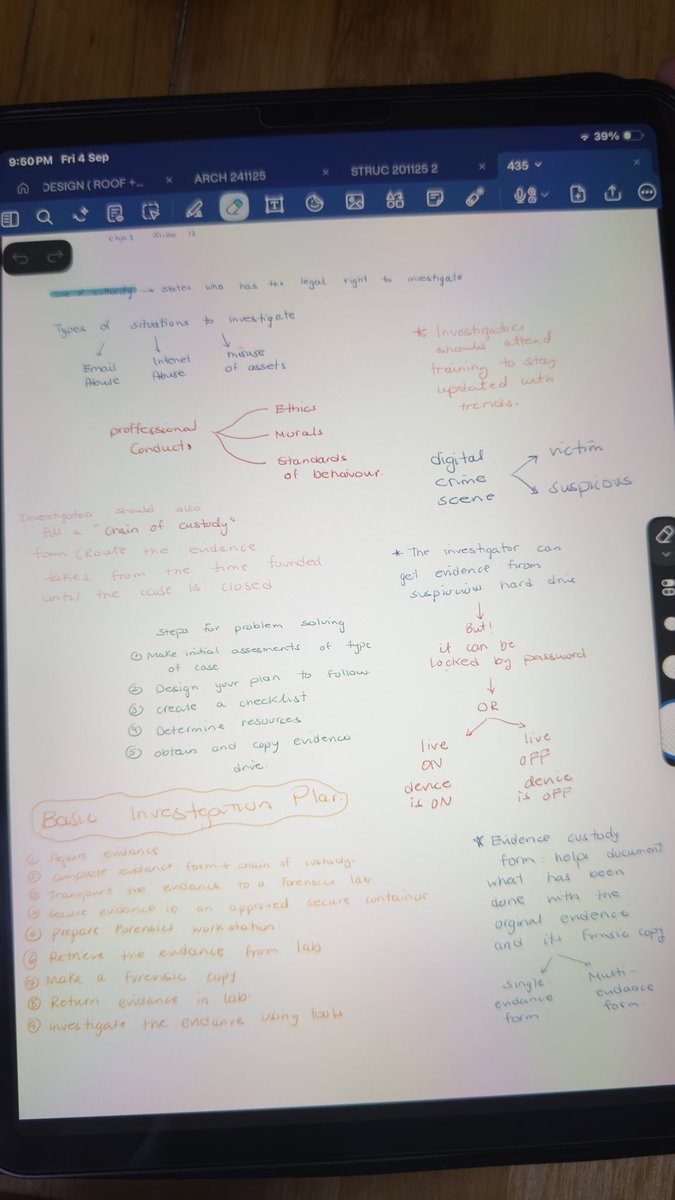 9:50 PM Fri 4 Sep
39%
DESIGN ( ROOF +...
ARCH 241125
STRUC 201125 2
435
chp 1 slide 12
line of authority → states who has the legal right to investigate
Types of situations to investigate
Email Abuse
Intenet Abuse
misuse of assets
* Investigator
should attend
training to stay
updated with
trends.
proffessional
Conduct
Ethics
Morals
Standards
of behaviour.
digital
crime
scene
victim
suspicous
Investigator should also
fill a "chain of custody"
form (Route the evidance
takes from the time founded
until the case is closed
* The investigator can
get evidence from
suspicious hard drive
But!
it can be
locked by password
OR
live
ON
device
is ON
live
OFF
device
is OFF
Steps for problem solving
① Make initial assesments of type
of case
② Design your plan to follow
③ create a checklist
④ Determine resources
⑤ obtain and copy evidence
drive.
Basic Investgation Plan.
① Aquire evidance
② complete evidance form + chain of custody.
③ Transport the evidance to a forensics lab
④ secure evidance in an approved secure container
prepare Forensics workstation
Retrieve the evidance from lab
⑦ Make a forensic copy
⑧ Return evidance in lab.
⑨ investigate the evidance using tools
* Evidence custody
form helps document
what has been
done with the
orginal evidence
and its fornsic copy.
Single-
evidance
form
Multi-
evidance
form.